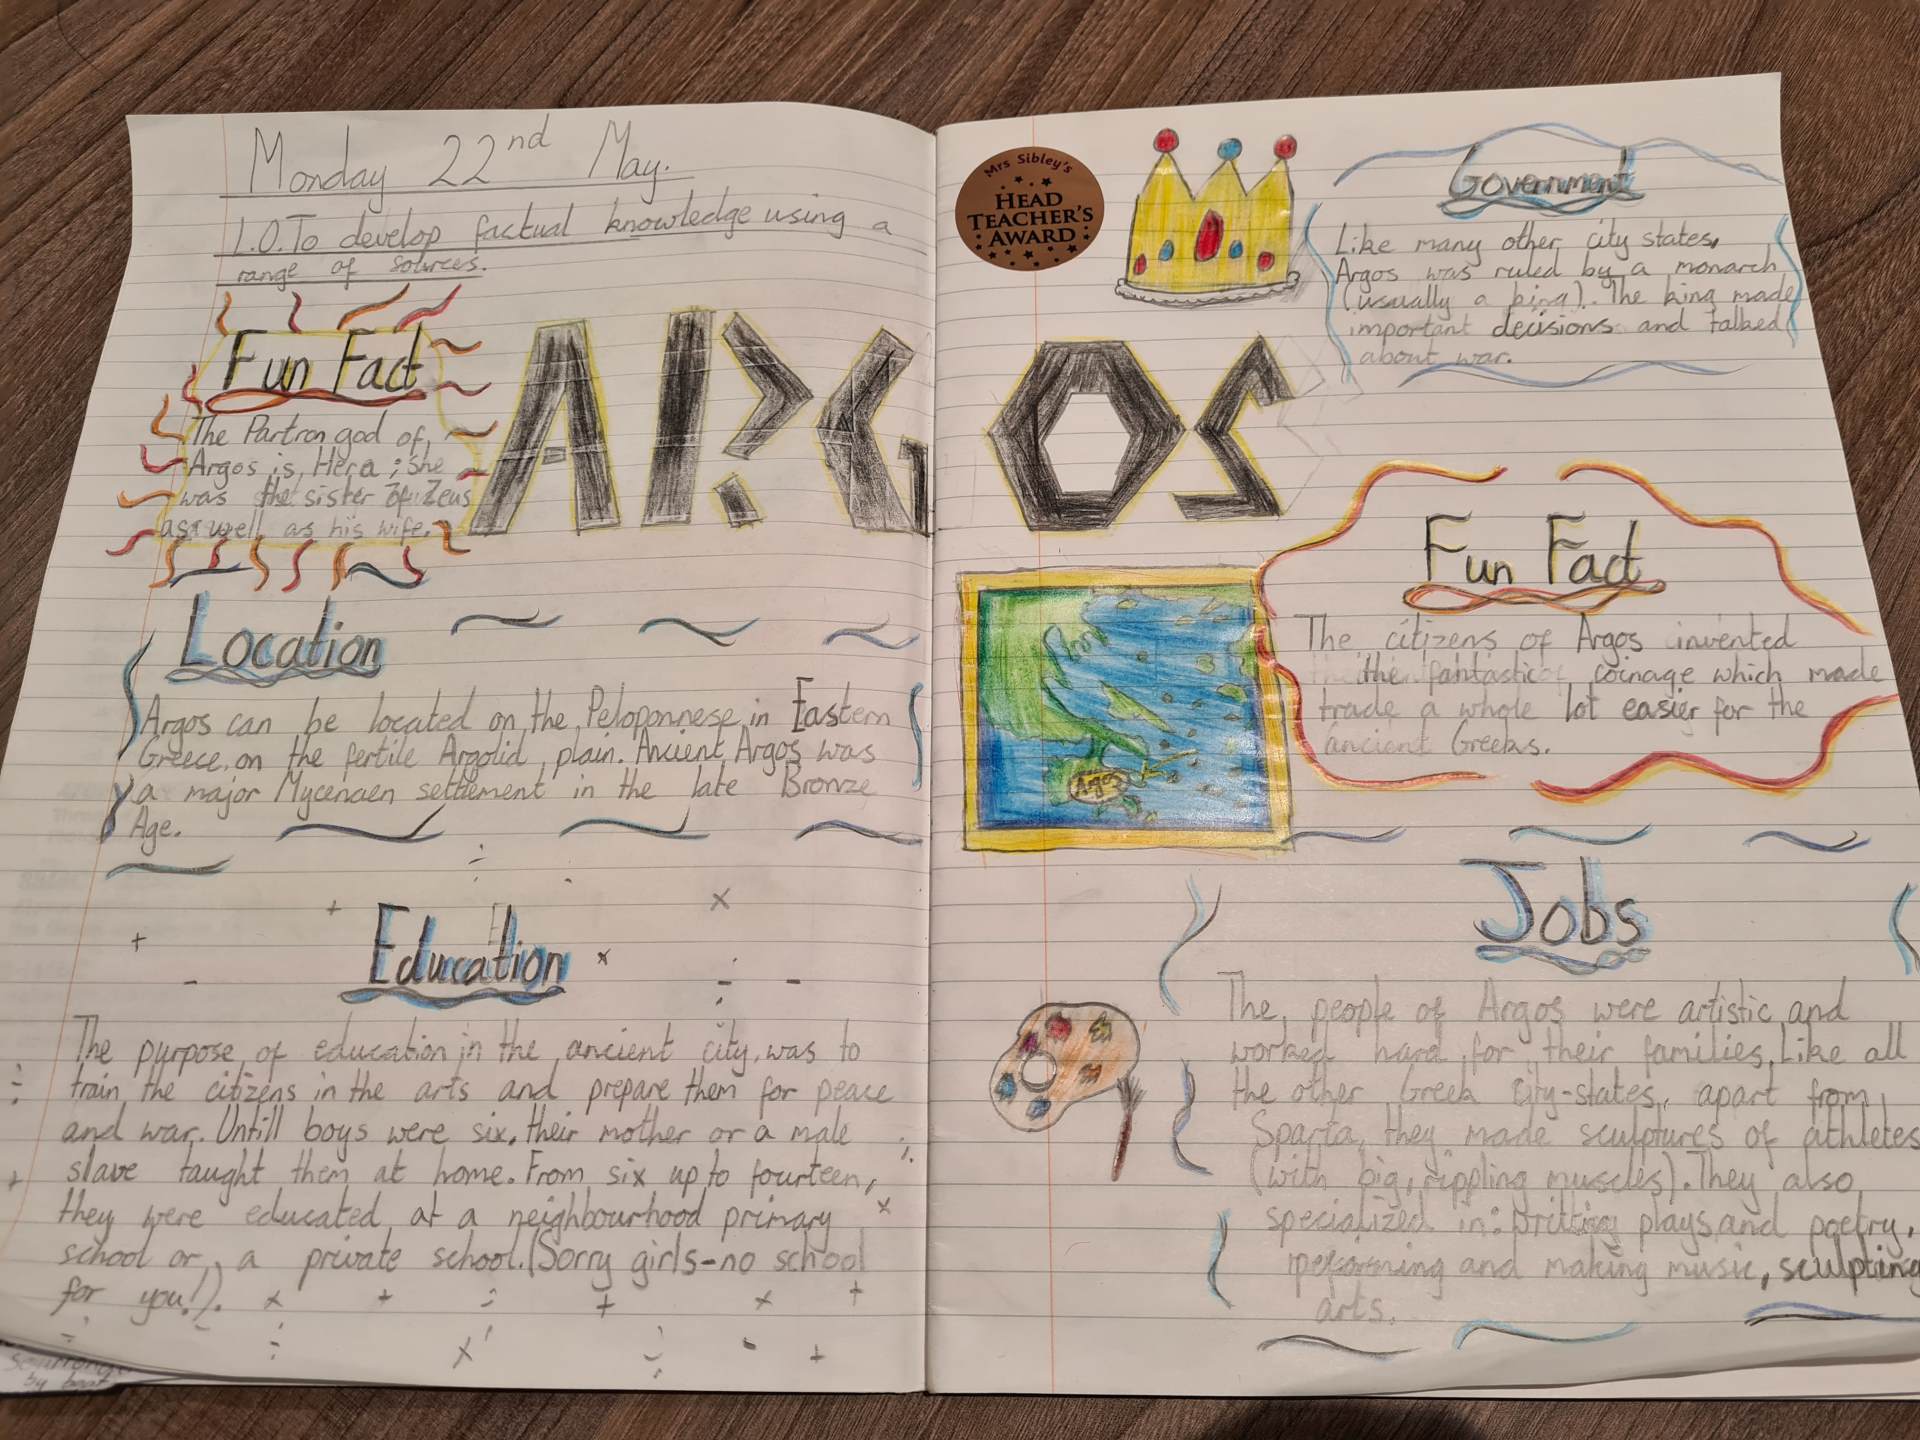 Monday 22nd May.
L.O. To develop factual knowledge using a
range of sources.
Fun Fact
The Partron god of
Argos is Hera ; she
was the sister of Zeus
as well as his wife.
ARGOS
Location
Argos can be located on the Peloponnese in Eastern
Greece, on the fertile Argolid plain. Ancient Argos was
a major Mycenaen settlement in the late Bronze
Age.
Education
The purpose of education in the ancient city was to
train the citizens in the arts and prepare them for peace
and war. Untill boys were six, their mother or a male
slave taught them at home. From six up to fourteen,
they were educated at a neighbourhood primary
school or a private school. (Sorry girls - no school
for you!).
by boat
Mrs Sibley's
HEAD
TEACHER'S
AWARD
Government
Like many other city states,
Argos was ruled by a monarch
(usually a king). The king made
important decisions and talked
about war.
Fun Fact
The citizens of Argos invented
the fantastic coinage which made
trade a whole lot easier for the
ancient Greeks.
Argos
Jobs
The people of Argos were artistic and
worked hard for their families. Like all
the other Greek city-states, apart from
Sparta, they made sculptures of athletes
(with big, rippling muscles). They also
specialized in: writing plays and poetry,
performing and making music, sculpting
arts.